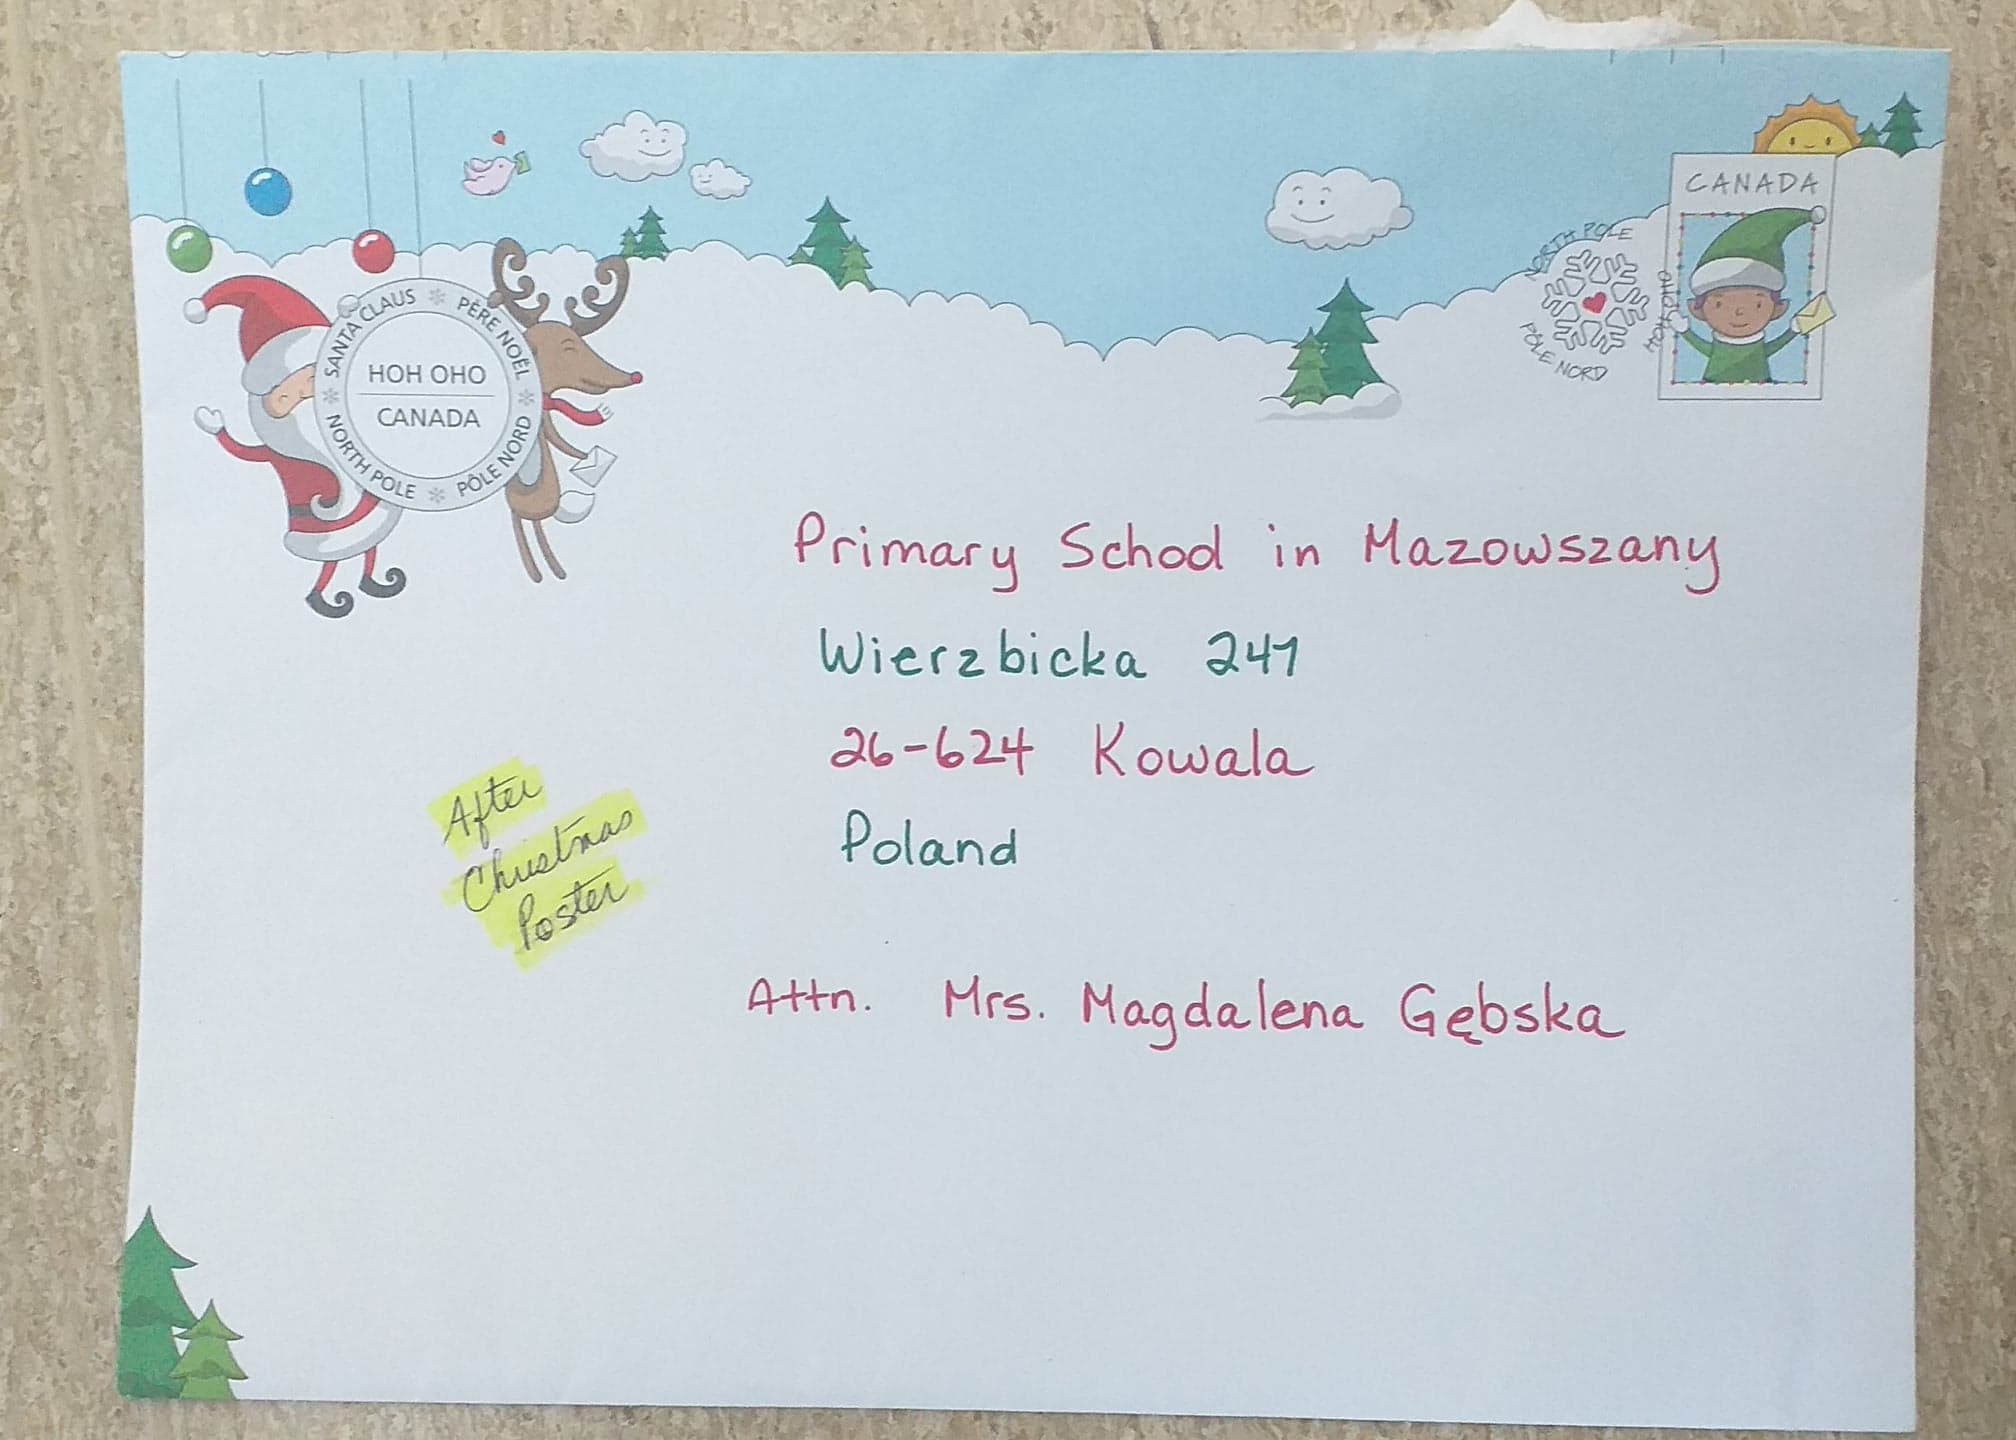 CANADA
NORTH POLE
HOHOHO
PÔLE NORD
SANTA CLAUS * PÈRE NOËL
HOH OHO
CANADA
NORTH POLE * PÔLE NORD
Primary School in Mazowszany
Wierzbicka 241
26-624 Kowala
Poland
After
Christmas
Poster
Attn. Mrs. Magdalena Gębska